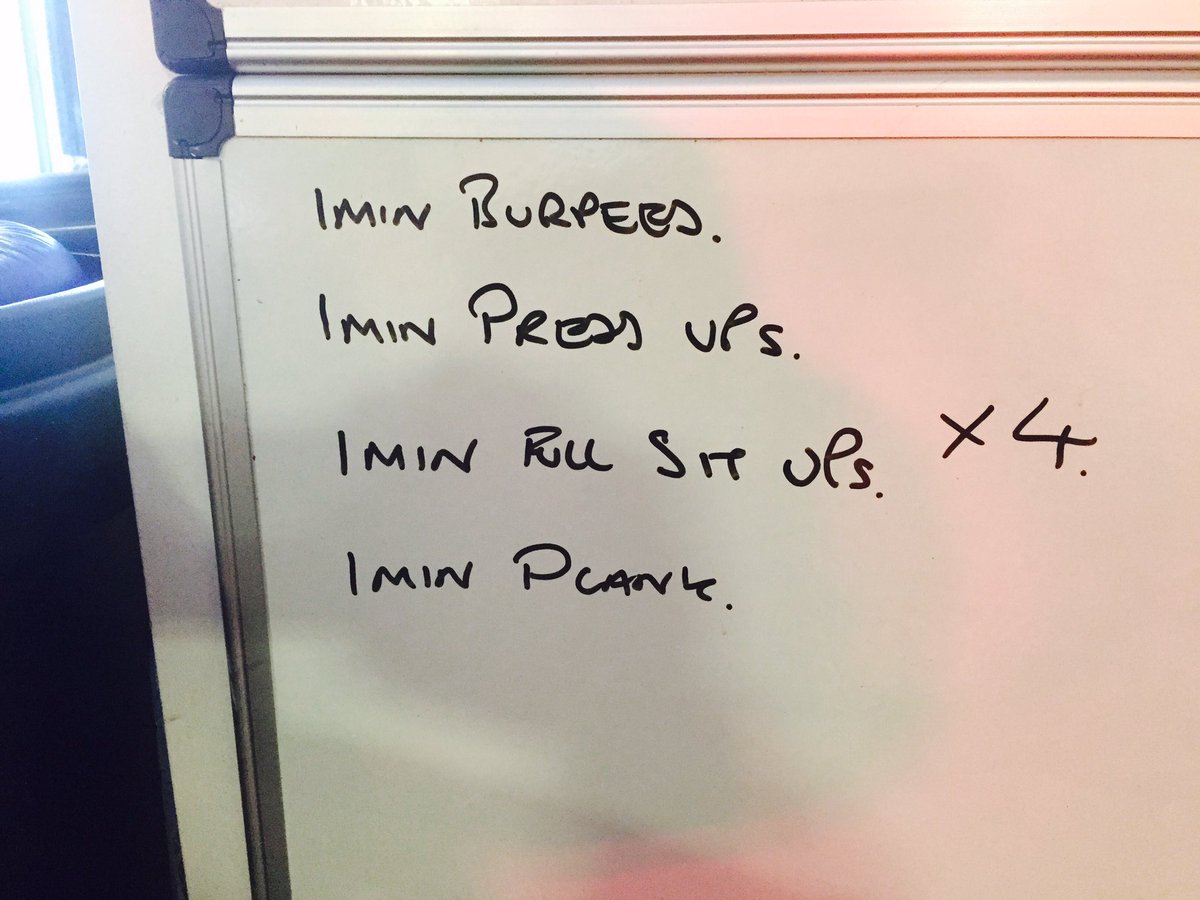 1MIN BURPEES.
1MIN PRESS UPS.
1MIN FULL SIT UPS. X4.
1MIN PLANK.